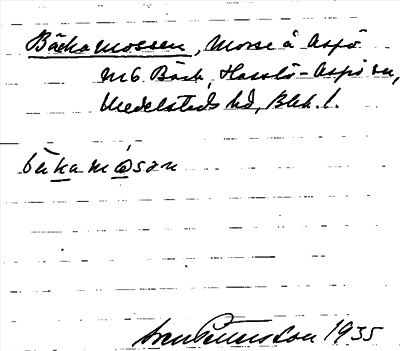 Bäckamossen, Mosse å Aspö
m6. Bäck, Hasslö-Aspö sn,
Medelstads hd, Blek. l.
bɛkamɔsən
Sven Gunnarsson 1935